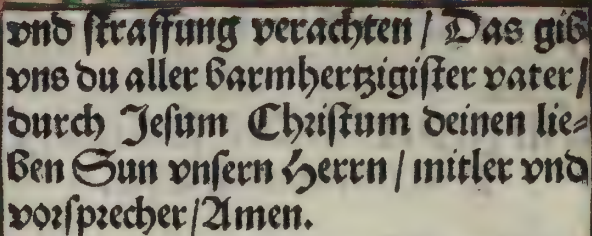 vnd ſtraffung verachten / Das gib
vns du aller barmhertzigiſter vater /
durch Jeſum Chriſtum deinen lie⸗
ben Sun vnſern Herrn / mitler vnd
vorſprecher / Amen.